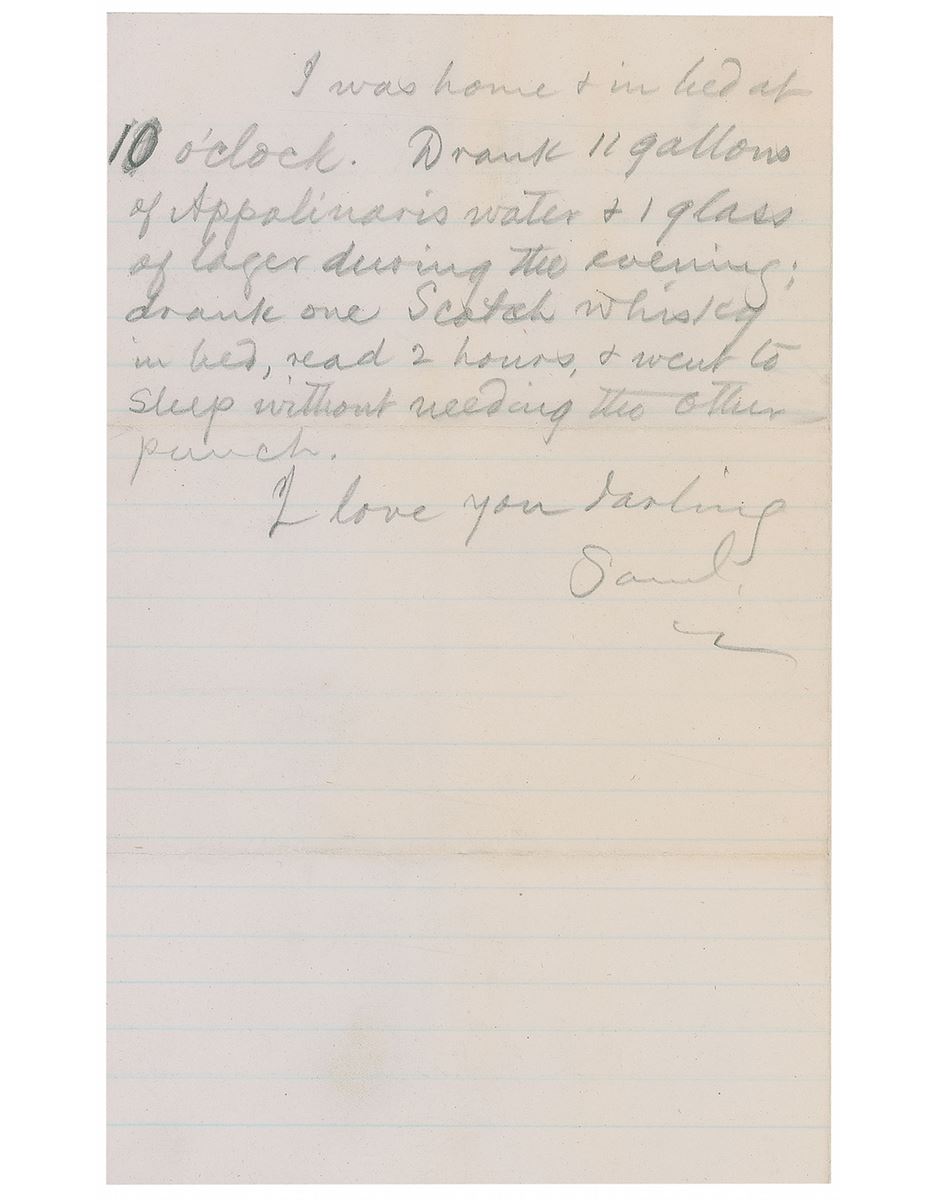 I was home & in bed at
10 o'clock. Drank 11 gallons
of Appolinaris water & 1 glass
of lager during the evening;
drank one Scotch whisky
in bed, read 2 hours, & went to
sleep without needing the other
punch.
I love you darling
Saml.